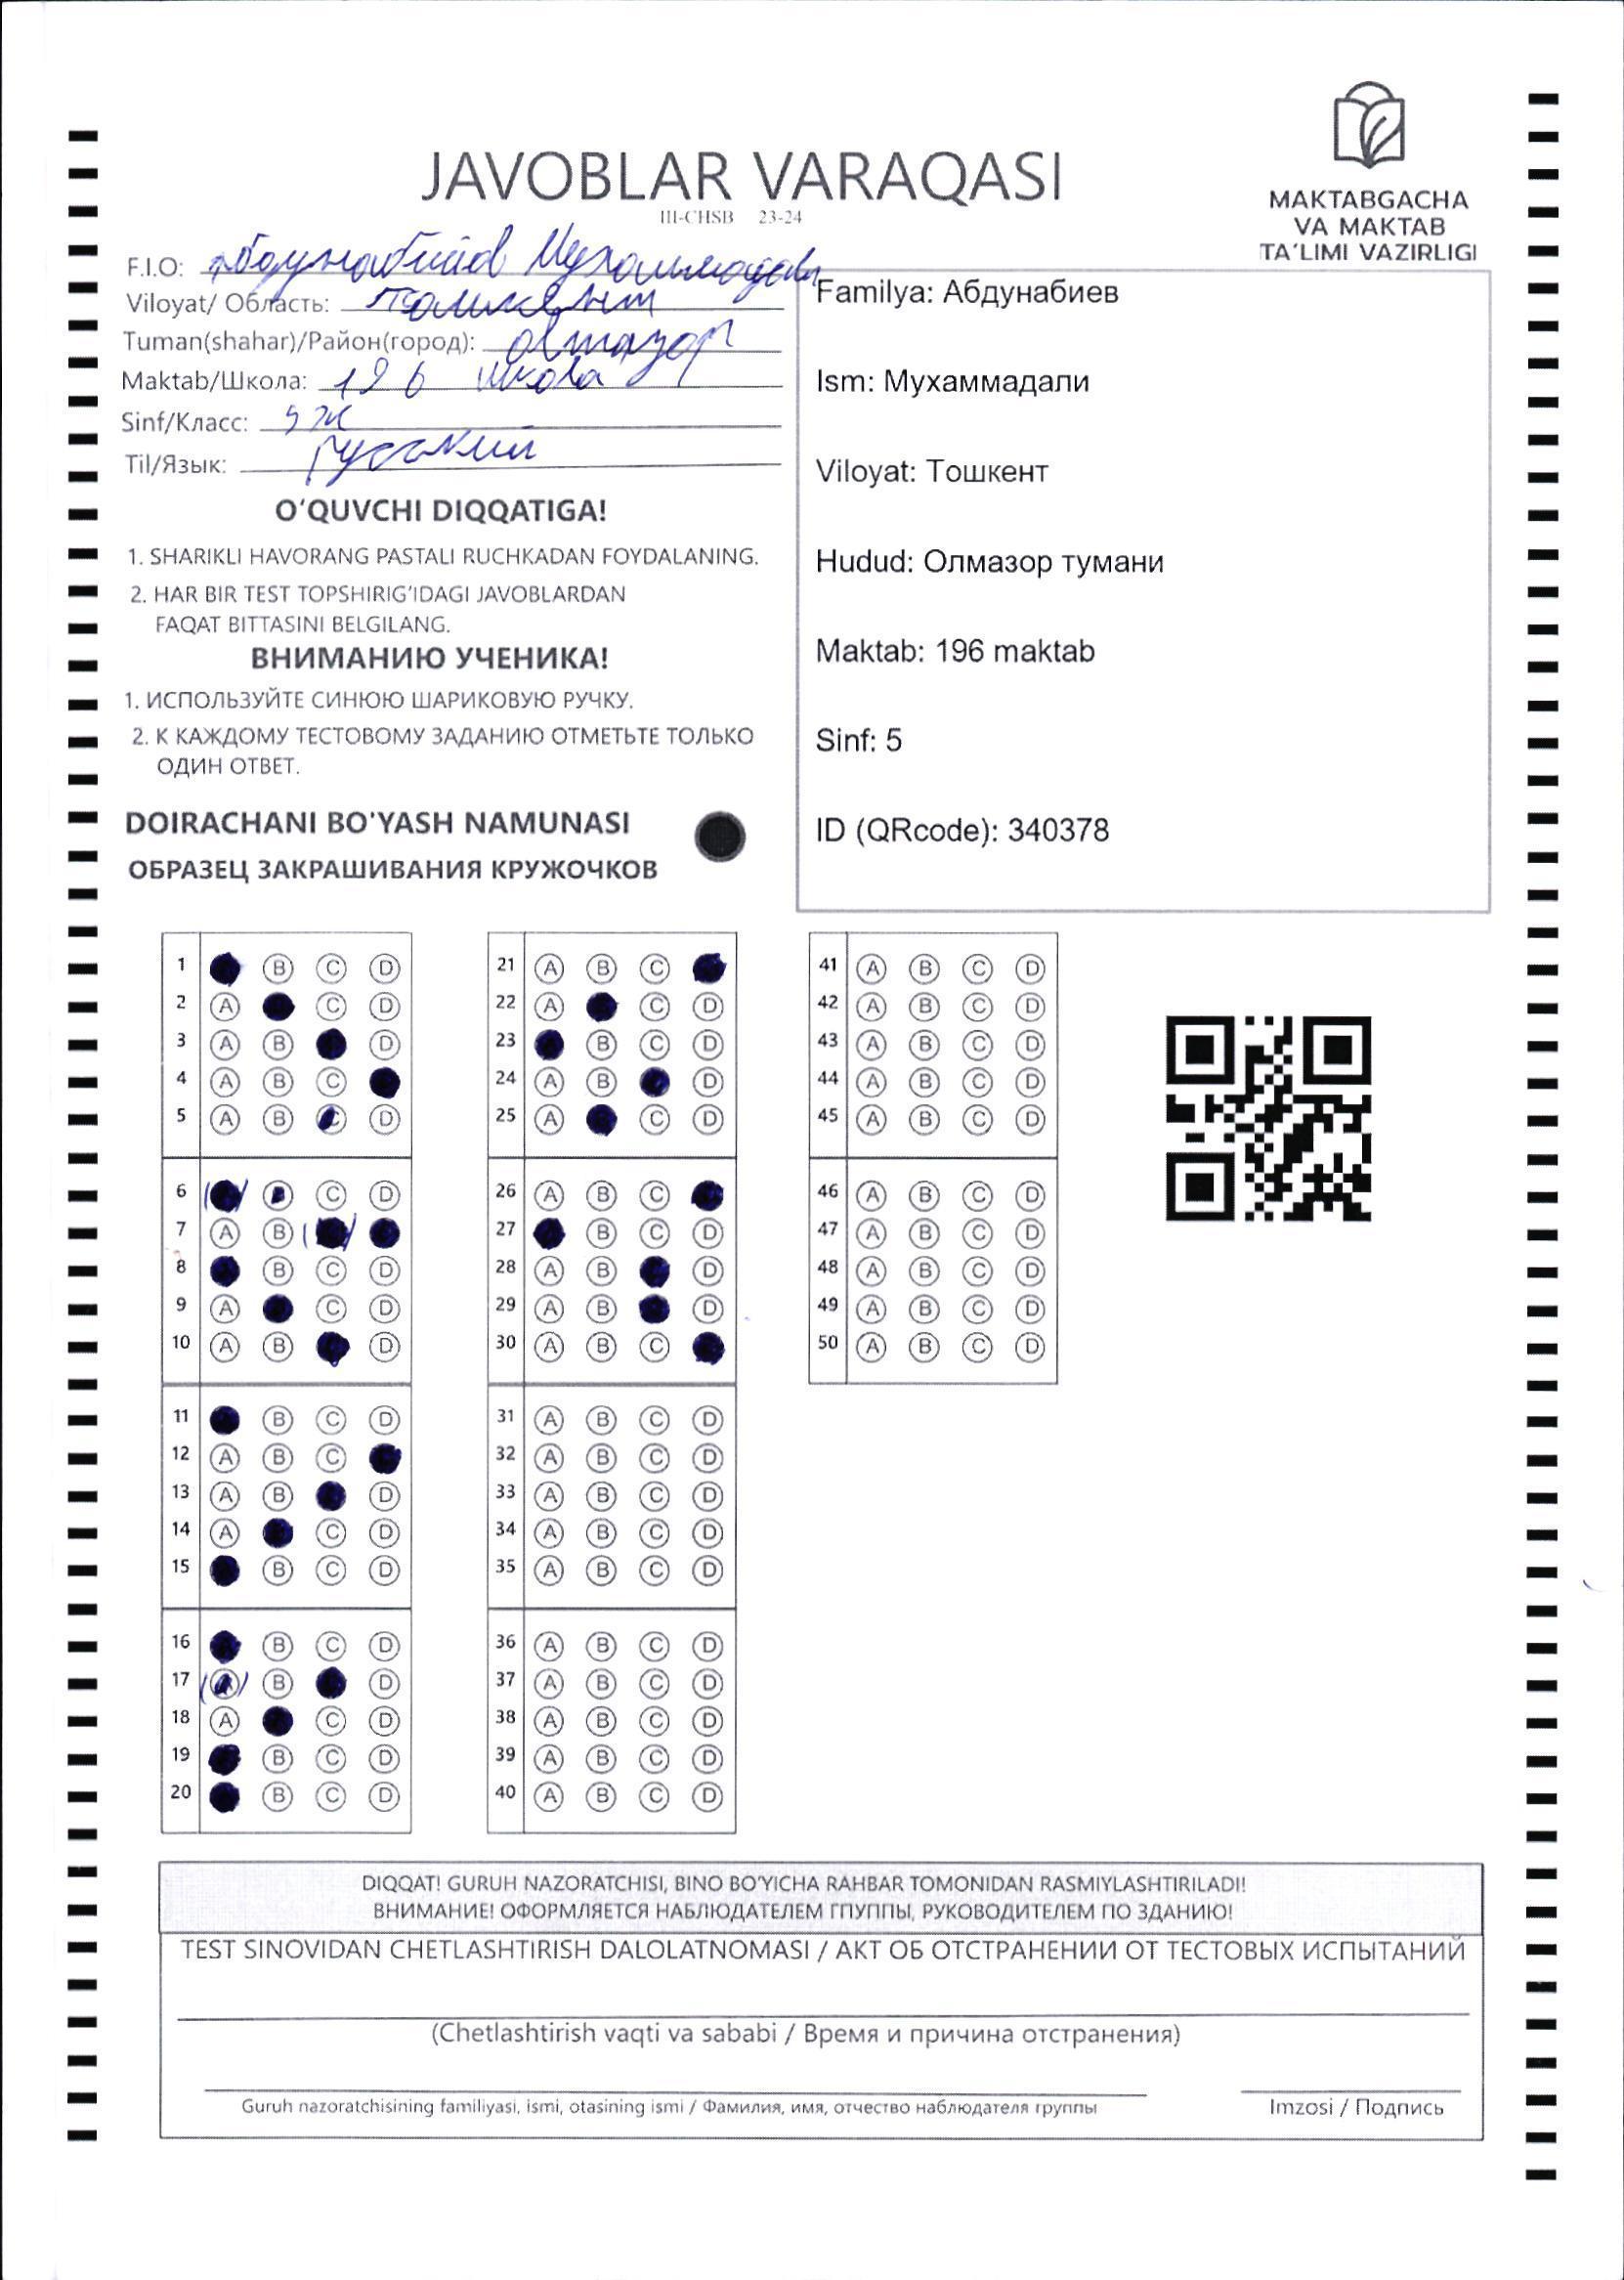 JAVOBLAR VARAQASI
III-CHSB 23-24
MAKTABGACHA
VA MAKTAB
TA'LIMI VAZIRLIGI
F.I.O: Абдунабиев Мухаммадали
Viloyat/ Область: Тошкент
Tuman(shahar)/Район(город): Olmazor
Maktab/Школа: 196 школа
Sinf/Класс: 5 ж
Til/Язык: русский
O'QUVCHI DIQQATIGA!
1. SHARIKLI HAVORANG PASTALI RUCHKADAN FOYDALANING.
2. HAR BIR TEST TOPSHIRIG'IDAGI JAVOBLARDAN
FAQAT BITTASINI BELGILANG.
ВНИМАНИЮ УЧЕНИКА!
1. ИСПОЛЬЗУЙТЕ СИНЮЮ ШАРИКОВУЮ РУЧКУ.
2. К КАЖДОМУ ТЕСТОВОМУ ЗАДАНИЮ ОТМЕТЬТЕ ТОЛЬКО
ОДИН ОТВЕТ.
DOIRACHANI BO'YASH NAMUNASI
ОБРАЗЕЦ ЗАКРАШИВАНИЯ КРУЖОЧКОВ
Familya: Абдунабиев
Ism: Мухаммадали
Viloyat: Тошкент
Hudud: Олмазор тумани
Maktab: 196 maktab
Sinf: 5
ID (QRcode): 340378
1 B C D
2 A C D
3 A B D
4 A B C
5 A B C D
6 B C D
7 A B
8 B C D
9 A C D
10 A B D
11 B C D
12 A B C
13 A B D
14 A C D
15 B C D
16 B C D
17 A B D
18 A C D
19 B C D
20 B C D
21 A B C
22 A C D
23 B C D
24 A B D
25 A C D
26 A B C
27 B C D
28 A B D
29 A B D
30 A B C
31 A B C D
32 A B C D
33 A B C D
34 A B C D
35 A B C D
36 A B C D
37 A B C D
38 A B C D
39 A B C D
40 A B C D
41 A B C D
42 A B C D
43 A B C D
44 A B C D
45 A B C D
46 A B C D
47 A B C D
48 A B C D
49 A B C D
50 A B C D
DIQQAT! GURUH NAZORATCHISI, BINO BO'YICHA RAHBAR TOMONIDAN RASMIYLASHTIRILADI!
ВНИМАНИЕ! ОФОРМЛЯЕТСЯ НАБЛЮДАТЕЛЕМ ГПУППЫ, РУКОВОДИТЕЛЕМ ПО ЗДАНИЮ!
TEST SINOVIDAN CHETLASHTIRISH DALOLATNOMASI / АКТ ОБ ОТСТРАНЕНИИ ОТ ТЕСТОВЫХ ИСПЫТАНИЙ
(Chetlashtirish vaqti va sababi / Время и причина отстранения)
Guruh nazoratchisining familiyasi, ismi, otasining ismi / Фамилия, имя, отчество наблюдателя группы
Imzosi / Подпись